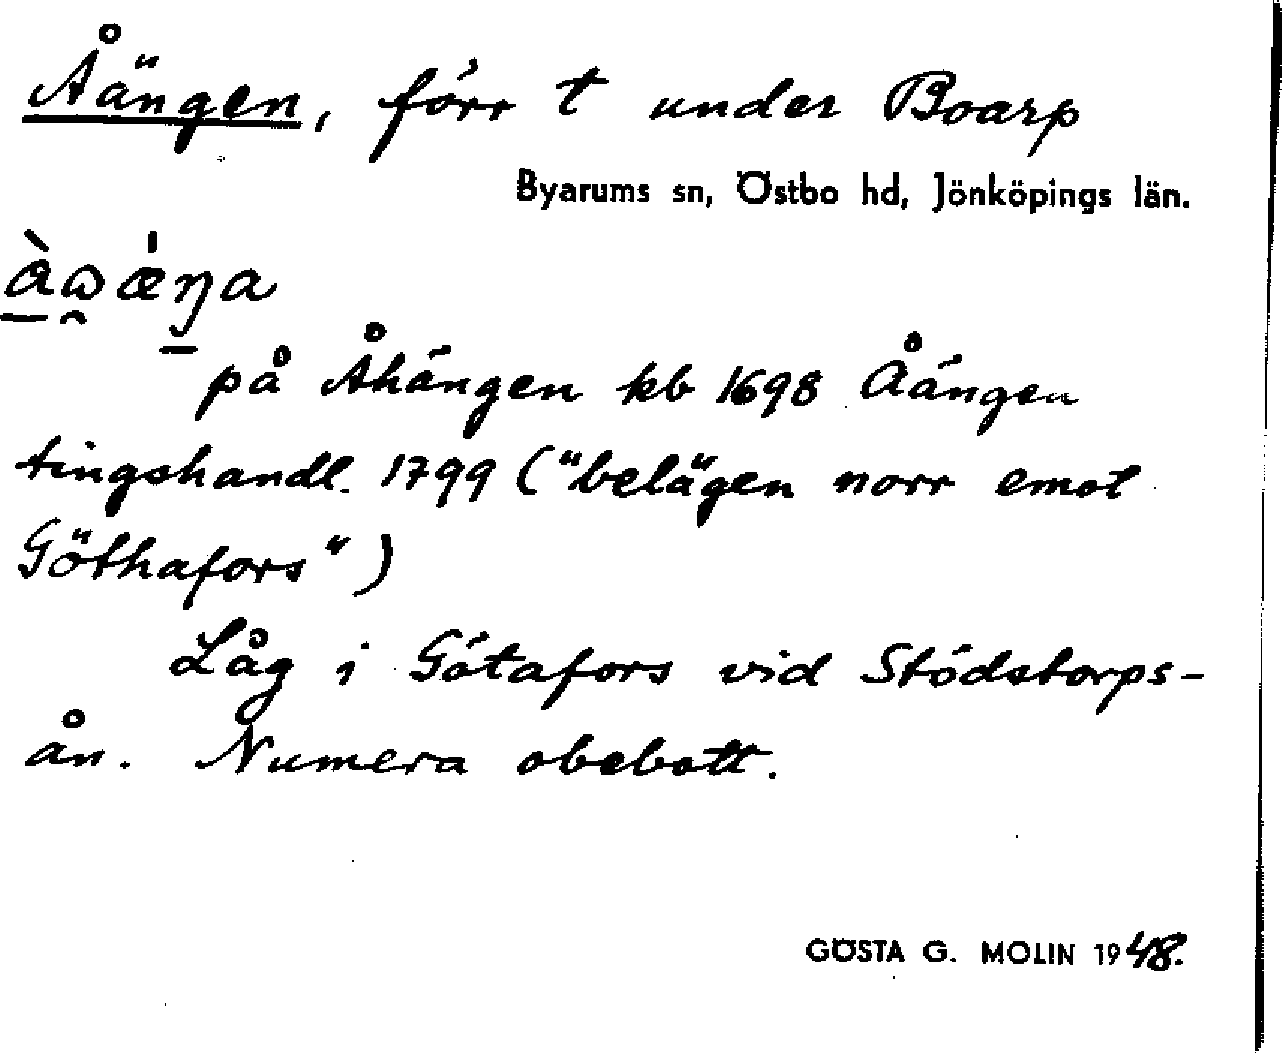 Åängen, förr t under Boarp
Byarums sn, Östbo hd, Jönköpings län.
på Åhängen kb 1698 Åängen
tingshandl. 1799 ("belägen norr emot
Göthafors")
Låg i Götafors vid Stödstorps-
ån. Numera obebott.
GÖSTA G. MOLIN 1948.